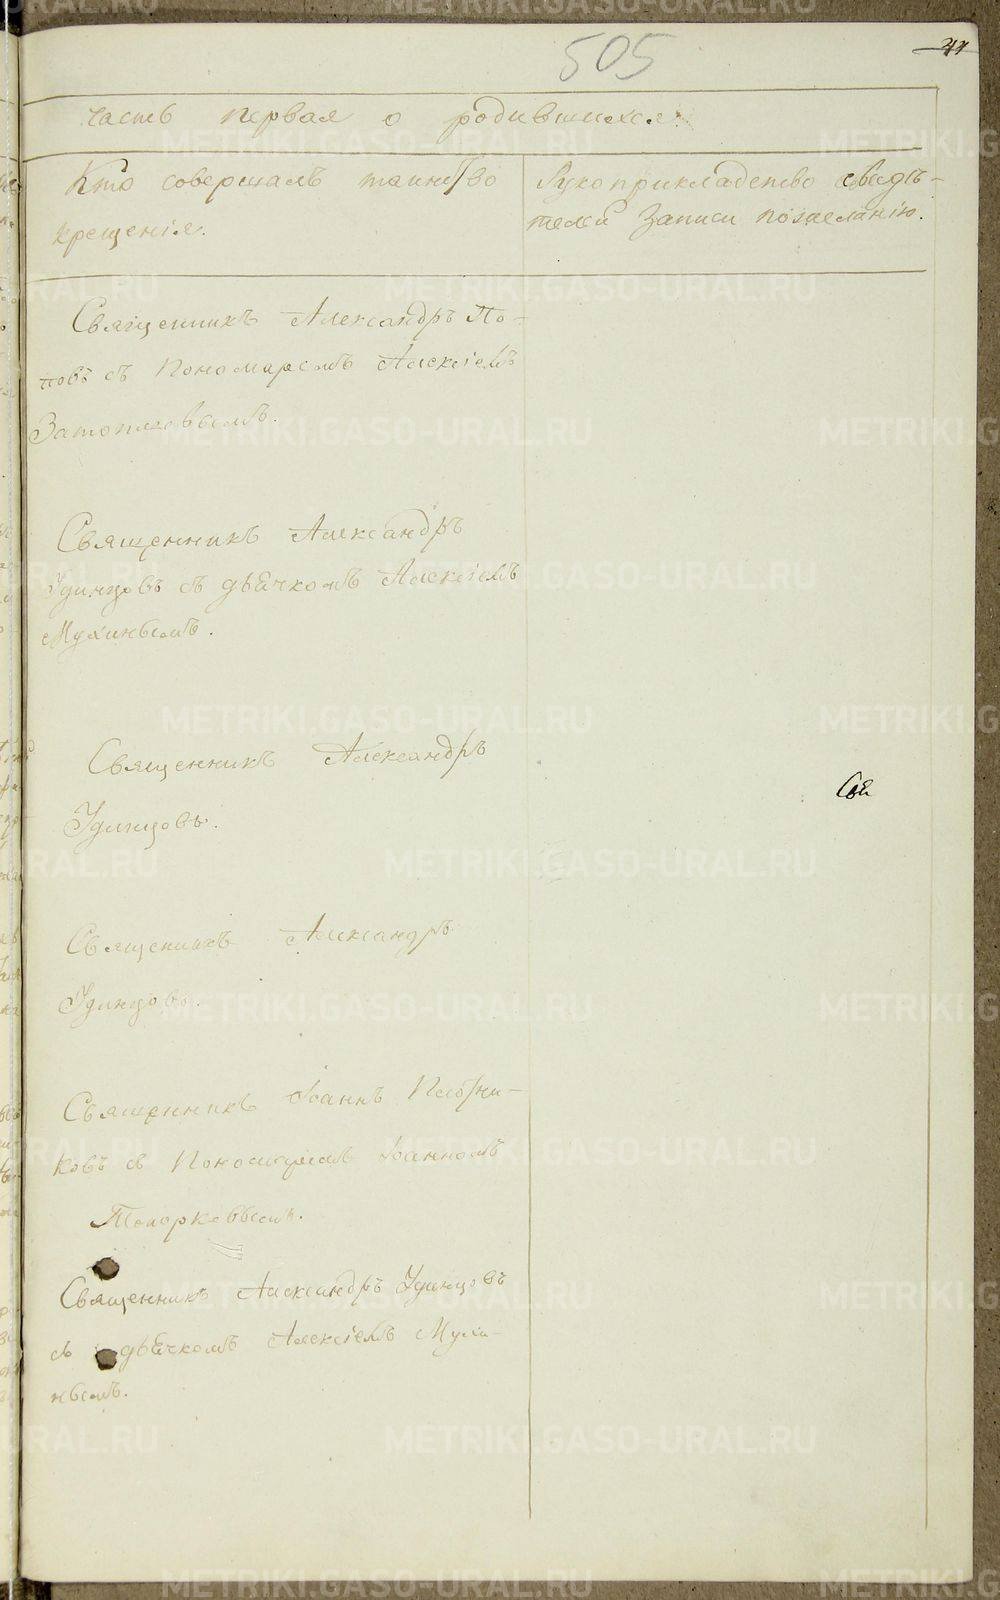 505
часть первая о родившихся.
Кто совершалъ таинство
крещенія.
Рукоприкладство свидѣ-
телей записи по желанію.
Священникъ Александръ По-
повъ съ Пономаремъ Алексіемъ
Священникъ Александръ
Удинцовъ съ дьячкомъ Алексіемъ
Мухинымъ.
Священникъ Александръ
Удинцовъ.
Свя
Священникъ Александръ
Удинцовъ.
Священникъ Іоаннъ Плотни-
ковъ съ Пономаремъ Іоанномъ
Топорковымъ.
Священникъ Александръ Удинцовъ
съ дьячкомъ Алексіемъ Мухи-
нымъ.
METRIKI.GASO-URAL.RU